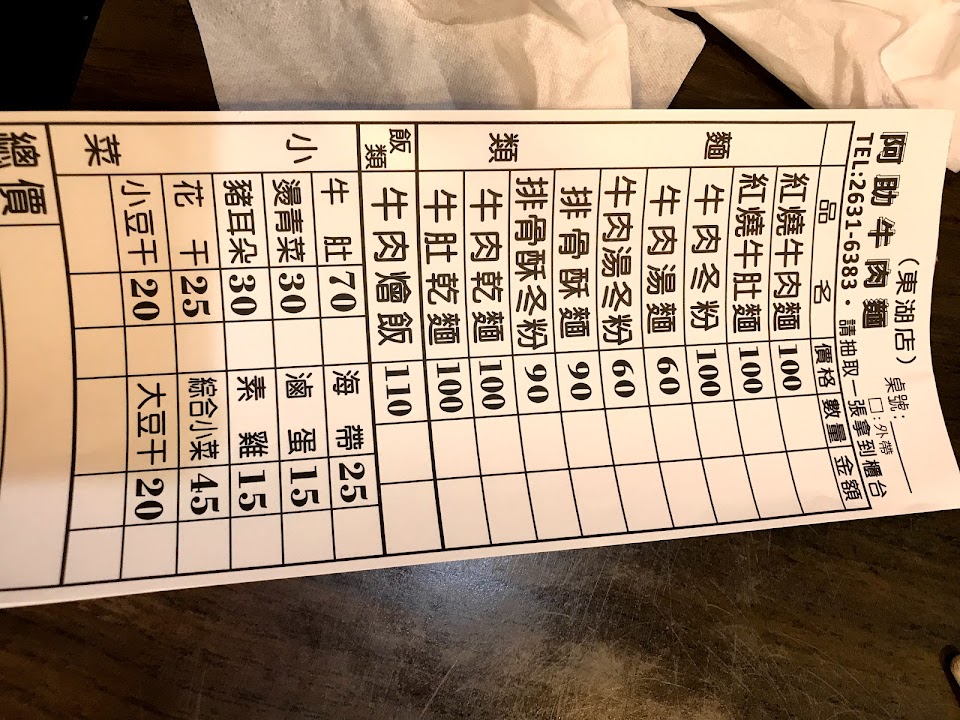 阿助牛肉麵（東湖店）
桌號：
□：外帶
TEL:2631-6383・請抽取一張拿到櫃台
品名 價格 數量 金額
麵類
紅燒牛肉麵 100
紅燒牛肚麵 100
牛肉冬粉 100
牛肉湯麵 60
牛肉湯冬粉 60
排骨酥麵 90
排骨酥冬粉 90
牛肉乾麵 100
牛肚乾麵 100
飯類
牛肉燴飯 110
小菜
牛肚 70 海帶 25
燙青菜 30 滷蛋 15
豬耳朵 30 素雞 15
花干 25 綜合小菜 45
小豆干 20 大豆干 20
總價